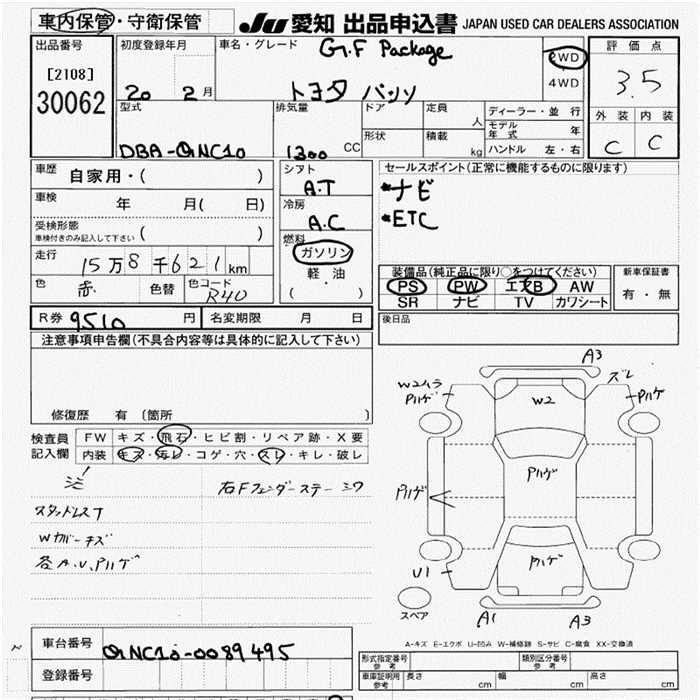 車内保管・守衛保管
JU 愛知 出品申込書 JAPAN USED CAR DEALERS ASSOCIATION
出品番号
[2108]
30062
初度登録年月
20 2月
車名・グレード
G.F Package
トヨタ パッソ
2WD
4WD
評価点
3.5
外装 内装
C C
型式
DBA-QNC10
排気量
1300 CC
ドア
定員 人
形状
積載 kg
ディーラー・並行
モデル年式 年
ハンドル 左・右
車歴
自家用・( )
車検
年 月( 日)
受検形態
車検付きのみ記入して下さい ( )
走行
15万8千621km
色
赤
色替
色コード
R40
シフト
A.T
冷房
A.C
燃料
ガソリン
軽・油
( )
セールスポイント(正常に機能するものに限ります)
*ナビ
*ETC
装備品(純正品に限り○をつけてください)
PS PW エアB AW
SR ナビ TV カワシート
新車保証書
有・無
R券 9510 円
名変期限 月 日
後日品
注意事項申告欄(不具合内容等は具体的に記入して下さい)
修復歴 有 〔箇所 〕
検査員記入欄
FW キズ・飛石・ヒビ割・リペア跡・X要
内装 キズ・汚レ・コゲ・穴・スレ・キレ・破レ
右Fフェンダーステー シワ
スタッドレスT
Wカバーキズ
各A.U.Pハゲ
A3
W2ムラ
Pハゲ
W2
ズレ
Pハゲ
Pハゲ
Pハゲ
Pハゲ
U1
スペア
A1
A3
A-キズ E-エクボ U-凹み W-補修跡 S-サビ C-腐食 XX-交換済
車台番号
QNC10-0089495
登録番号
形式指定番号
参考
類別区分番号
参考
車庫証明用
参考
長さ cm
幅 cm
高さ cm